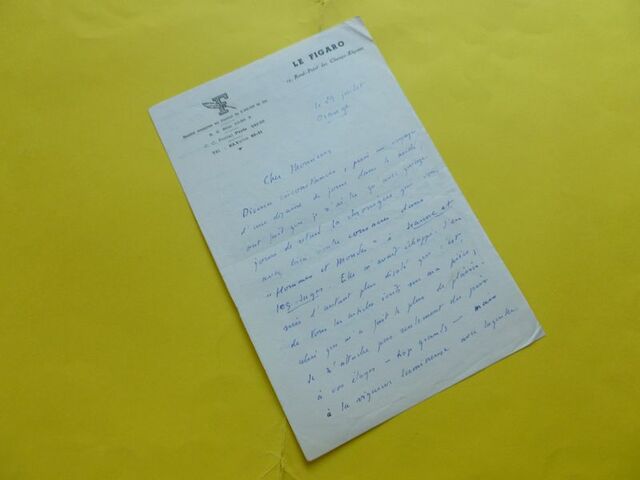 LE FIGARO
14, Rond-Point des Champs-Elysées
F
R. C. Seine
C. C. Postal Paris
Tél :
le 29 juillet
Orange
Cher Monsieur
Diverses circonstances, puis un voyage
d'une dizaine de jours dans le midi
ont fait que je n'ai lu qu'avec quinze
jours de retard la chronique que vous
avez bien voulu consacrer dans
"Hommes et Mondes" à Jeanne et
les Juges. Elle m'avait échappé. J'en
suis d'autant plus désolé que c'est
de tous les articles écrits sur ma pièce,
celui qui m'a fait le plus de plaisir.
Je m'attache non seulement
à vos éloges - trop grands - mais
à la vigueur lumineuse avec laquelle